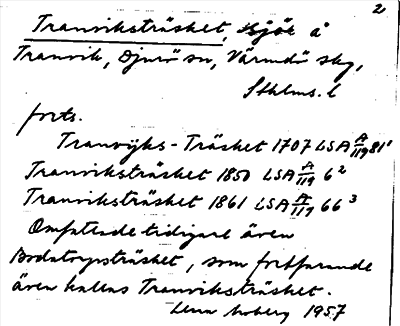 2
Tranviksträsket, sjö å
Tranvik, Djurö sn, Värmdö skg,
Sthlms. l
forts.
Tranvijks-Träsket 1707 LSA A/119 81¹
Tranviksträsket 1850 LSA A/119 6²
Tranviksträsket 1861 LSA A/117 66³
Omfattade tidigare även
träsket, som fortfarande
även kallas Tranviksträsket.
Lena Moberg 1957